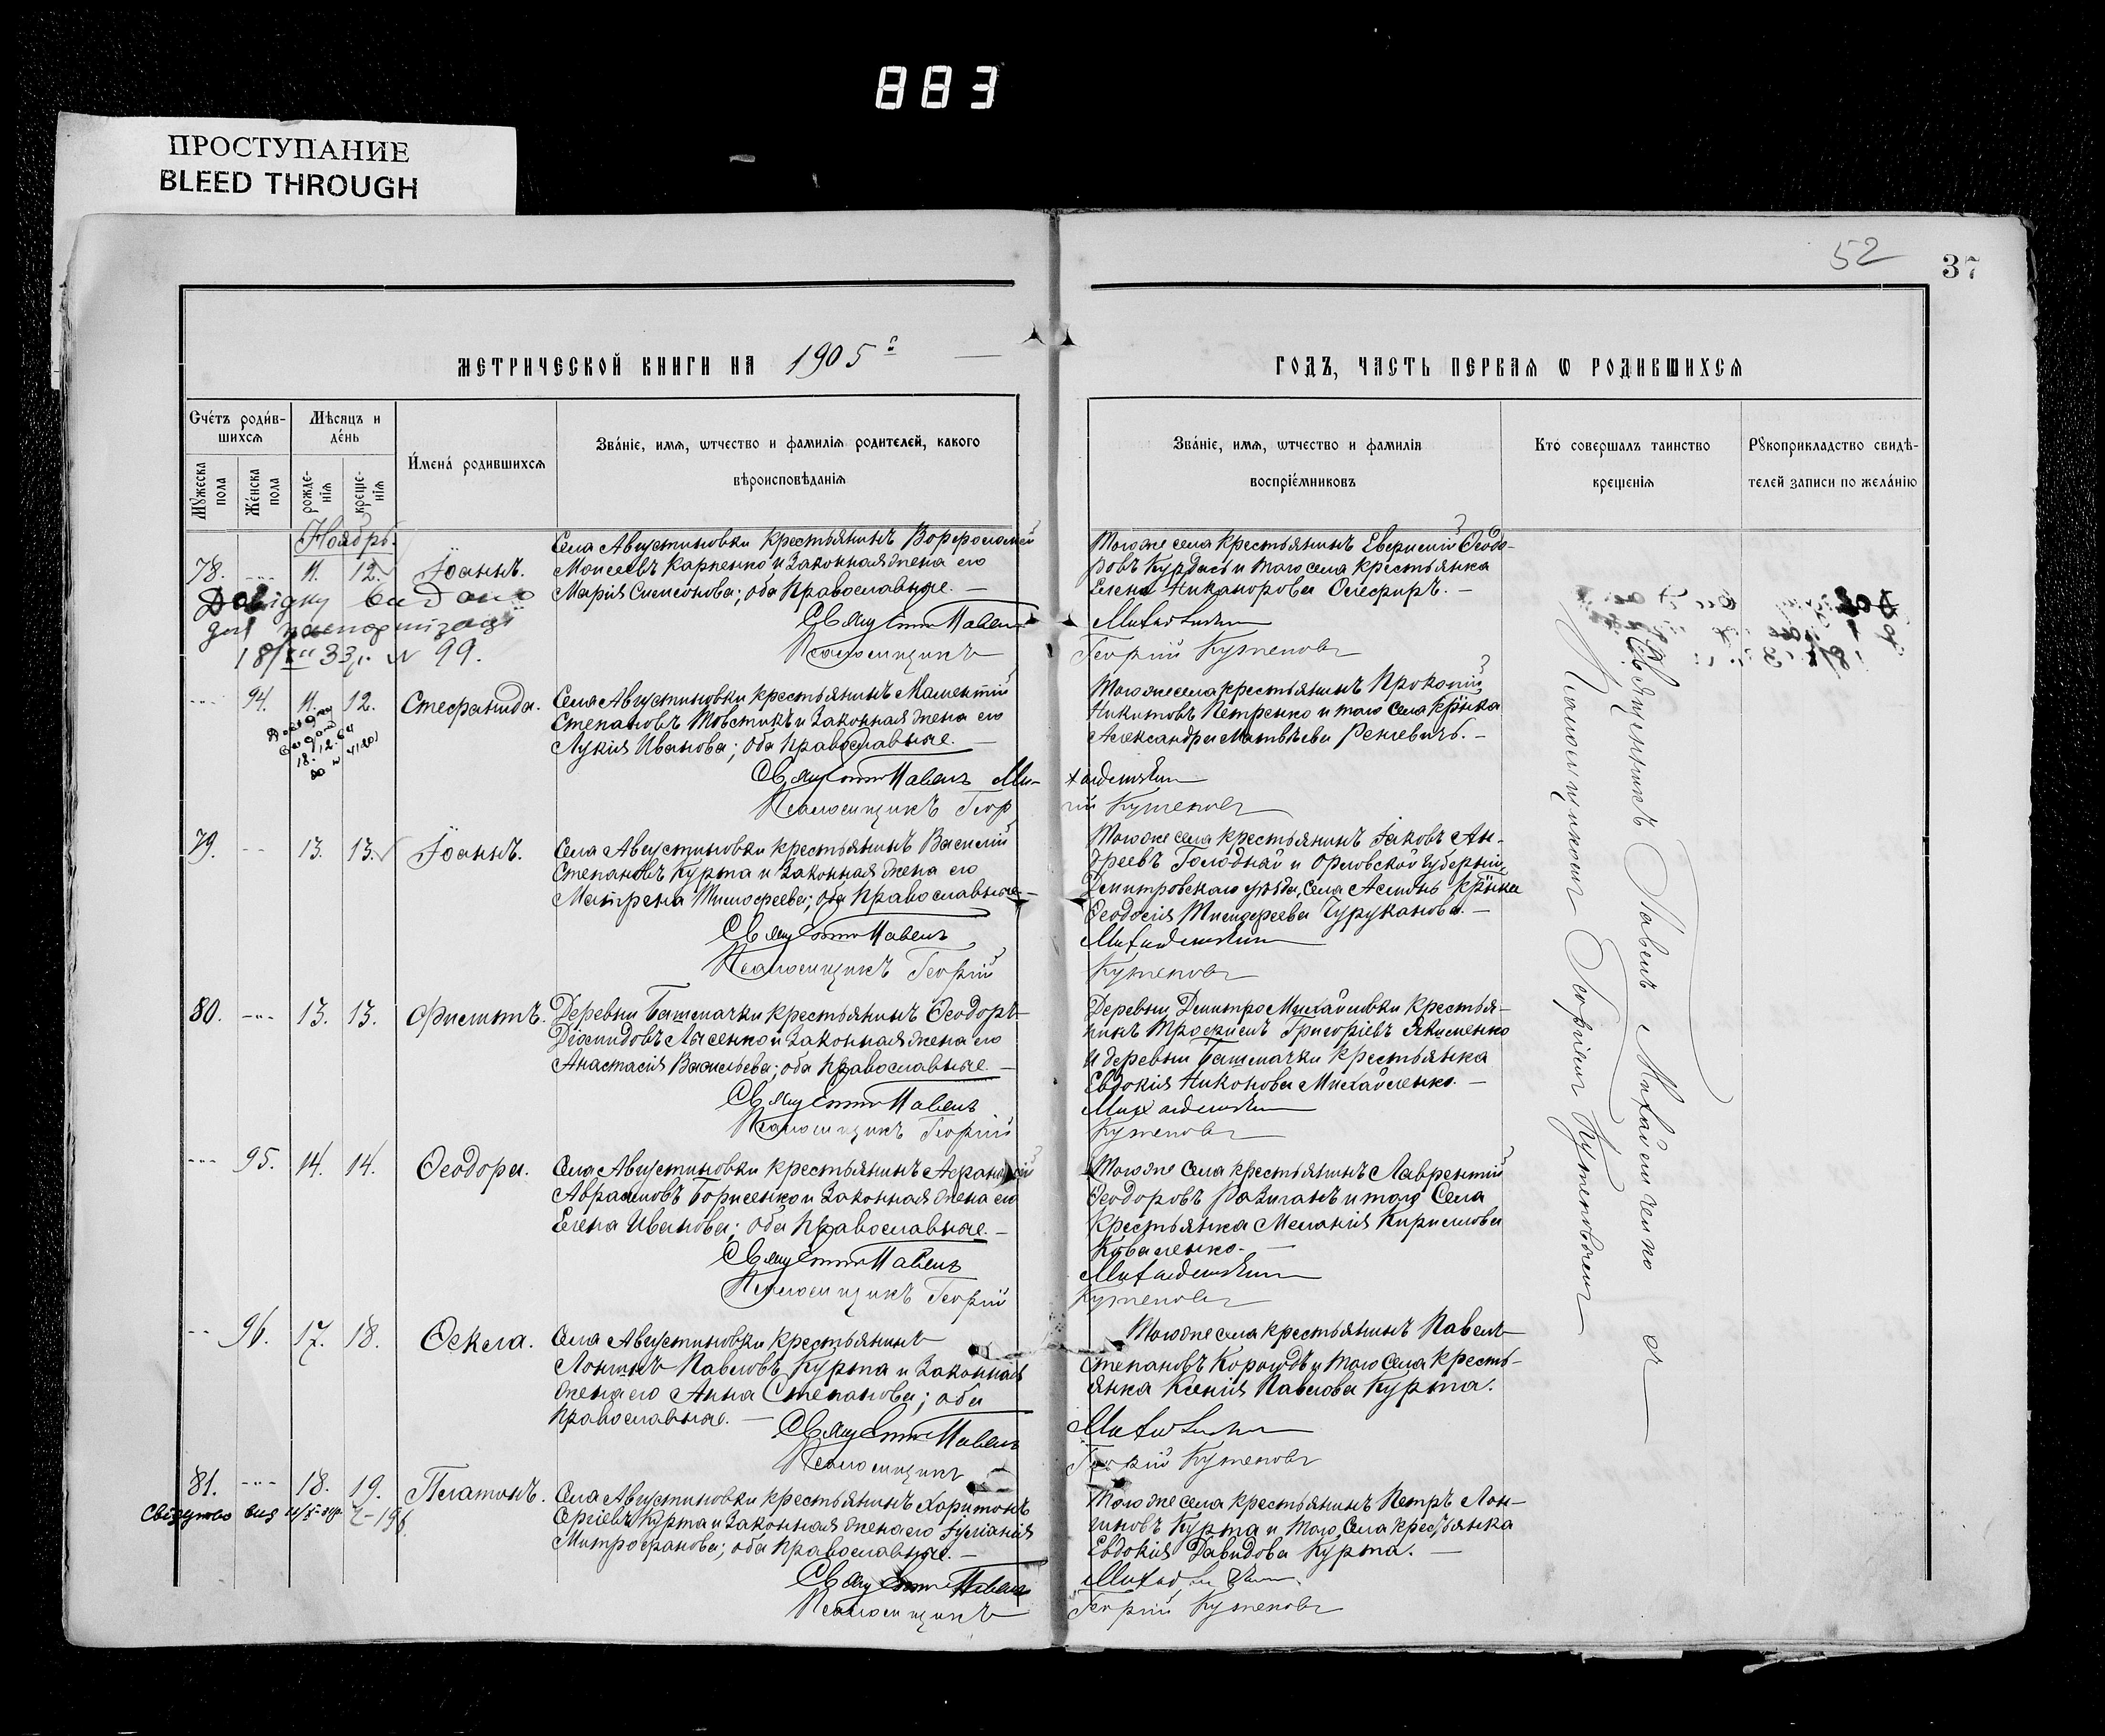 883
ПРОСТУПАНИЕ
BLEED THROUGH
52
37
МЕТРИЧЕСКОЙ КНИГИ НА 1905 г
ГОДЪ, ЧАСТЬ ПЕРВАЯ Ѡ РОДИВШИХСѦ
Счетъ родив-
шихсѧ
Мѣсяцъ и
день
Имена родившихсѧ
Званіе, имѧ, ѡтчество и фамилія родителей, какого
вѣроисповѣданія
Мꙋжеска пола
Женска пола
рожде-
нія
креще-
нія
Званіе, имѧ, ѡтчество и фамилія
воспріемниковъ
Кто совершалъ таинство
крещенія
Рꙋкоприкладство свидѣ-
телей записи по желанію
Ноябрь.
78. --- 11. 12. Іоаннъ.
Села Августиновки крестьянинъ Ворфоломей
Моисеевъ Карпенко и законная жена его
Марія Симеонова; оба православные. —
Священникъ Павелъ
Псаломщикъ
Довідку видано
для паспортізаціі
18/XII 33 р. N 99.
Тогоже села крестьянинъ Евгеній Ѳеодо-
ровъ Курдась и того села крестьянка
Елена Никанорова Олефиръ. —
Михайличенко
Георгій Кутеповъ
--- 94. 11. 12. Стефанида.
Села Августиновки крестьянинъ
Степановъ Товстикъ и законная жена его
Лукія Иванова; оба православные. —
Священникъ Павелъ Ми-
Псаломщикъ Геор
Тогоже села крестьянинъ Прокопій
Никитовъ Петренко и того села кр-нка
Александра Матвѣева Реневичъ. —
хайличенко
гій Кутеповъ
79. -- 13. 13. Іоаннъ.
Села Августиновки крестьянинъ Василій
Степановъ Курта и законная жена его
Матрена Тимофеева; оба православные —
Священникъ Павелъ
Псаломщикъ Георгій
Тогоже села крестьянинъ Іаковъ Ан-
дреевъ Голодный и Орловской губерніи,
Димитровскаго уѣзда, села кр-нка
Ѳеодосія Тимофеева Чуруканова. —
Михайличенко
Кутеповъ
80. --- 13. 13. Филиппъ.
Деревни Башмачки крестьянинъ Ѳеодоръ
Діомидовъ Лысенко и законная жена его
Анастасія Васильева; оба православные. —
Священникъ Павелъ
Псаломщикъ Георгій
Деревни Дмитро Михайловки крестья-
нинъ Трофимъ Григоріевъ Якименко
и деревни Башмачки крестьянка
Евдокія Никонова Михайленко. —
Михайличенко
Кутеповъ
--- 95. 14. 14. Ѳеодора.
Села Августиновки крестьянинъ Афанасій
Аврамовъ Борисенко и законная жена его
Елена Иванова; оба православные. —
Священникъ Павелъ
Псаломщикъ Георгій
Тогоже села крестьянинъ Лаврентій
Ѳеодоровъ и того села
крестьянка Меланія Кириллова
Коваленко. —
Михайличенко
Кутеповъ
-- 96. 17. 18. Ѳекла.
Села Августиновки крестьянинъ
Лонгинъ Павловъ Курта и законная
жена его Анна Степанова; оба
православные. —
Священникъ Павелъ
Псаломщикъ
Тогоже села крестьянинъ Павелъ
Степановъ и того села кресть-
янка Ксенія Павлова Курта.
Михайличенко
Георгій Кутеповъ
81. --- 18. 19. Платонъ.
Села Августиновки крестьянинъ Харитонъ
Сергіевъ Курта и законная жена его Іуліанія
Митрофанова; оба православные. —
Священникъ Павелъ
Псаломщикъ
Тогоже села крестьянинъ Петръ Лон-
гиновъ Курта и того села крестьянка
Евдокія Давидова Курта. —
Михайличенко
Георгій Кутеповъ
Священникъ Павелъ Михайличенко съ
Псаломщикомъ Георгіемъ Кутеповымъ